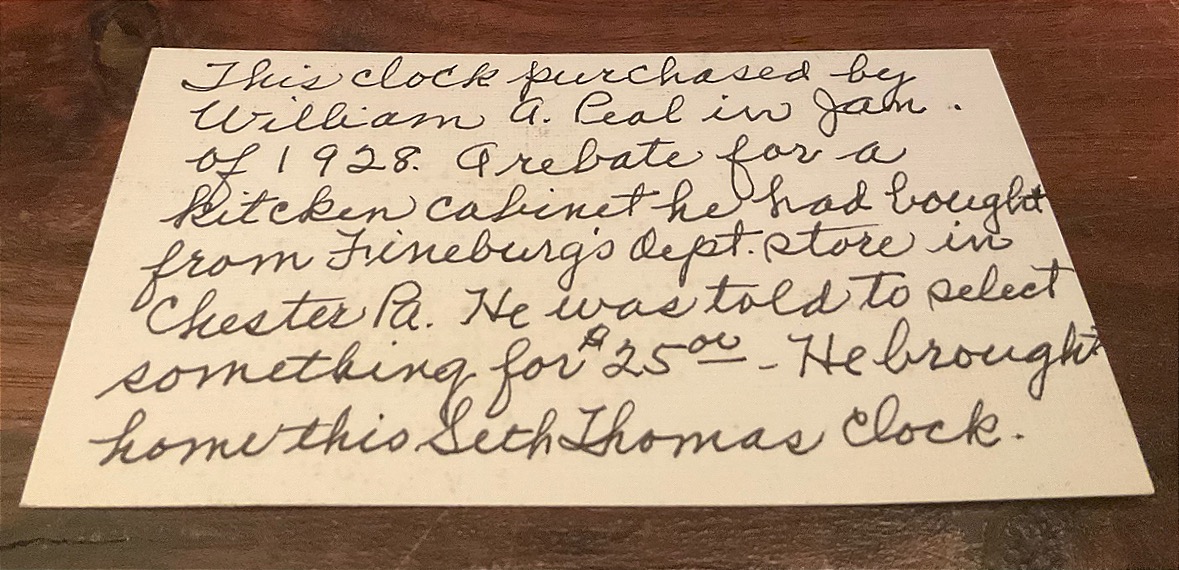 This clock purchased by
William A. Peal in Jan.
of 1928. A rebate for a
kitchen cabinet he had bought
from Fineburg's Dept. store in
Chester Pa. He was told to select
something for $25 00 - He brought
home this Seth Thomas clock.